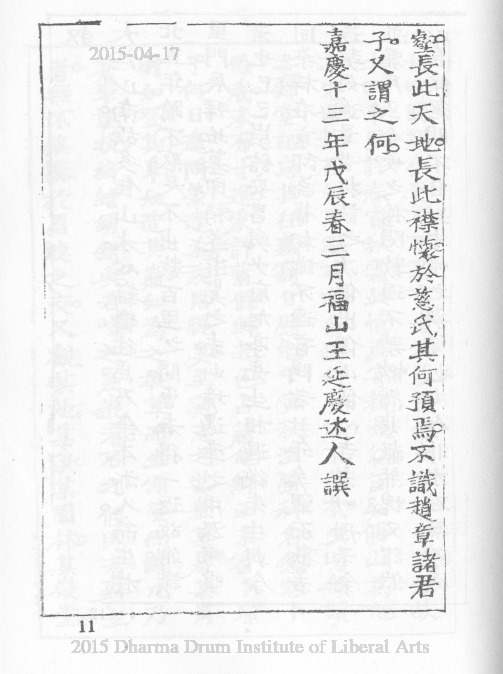 2015-04-17
壑長此天地長此襟懷於慈氏其何預焉不識趙章諸君
子又謂之何
嘉慶十三年戊辰春三月福山王延慶述人譔
11
2015 Dharma Drum Institute of Liberal Arts